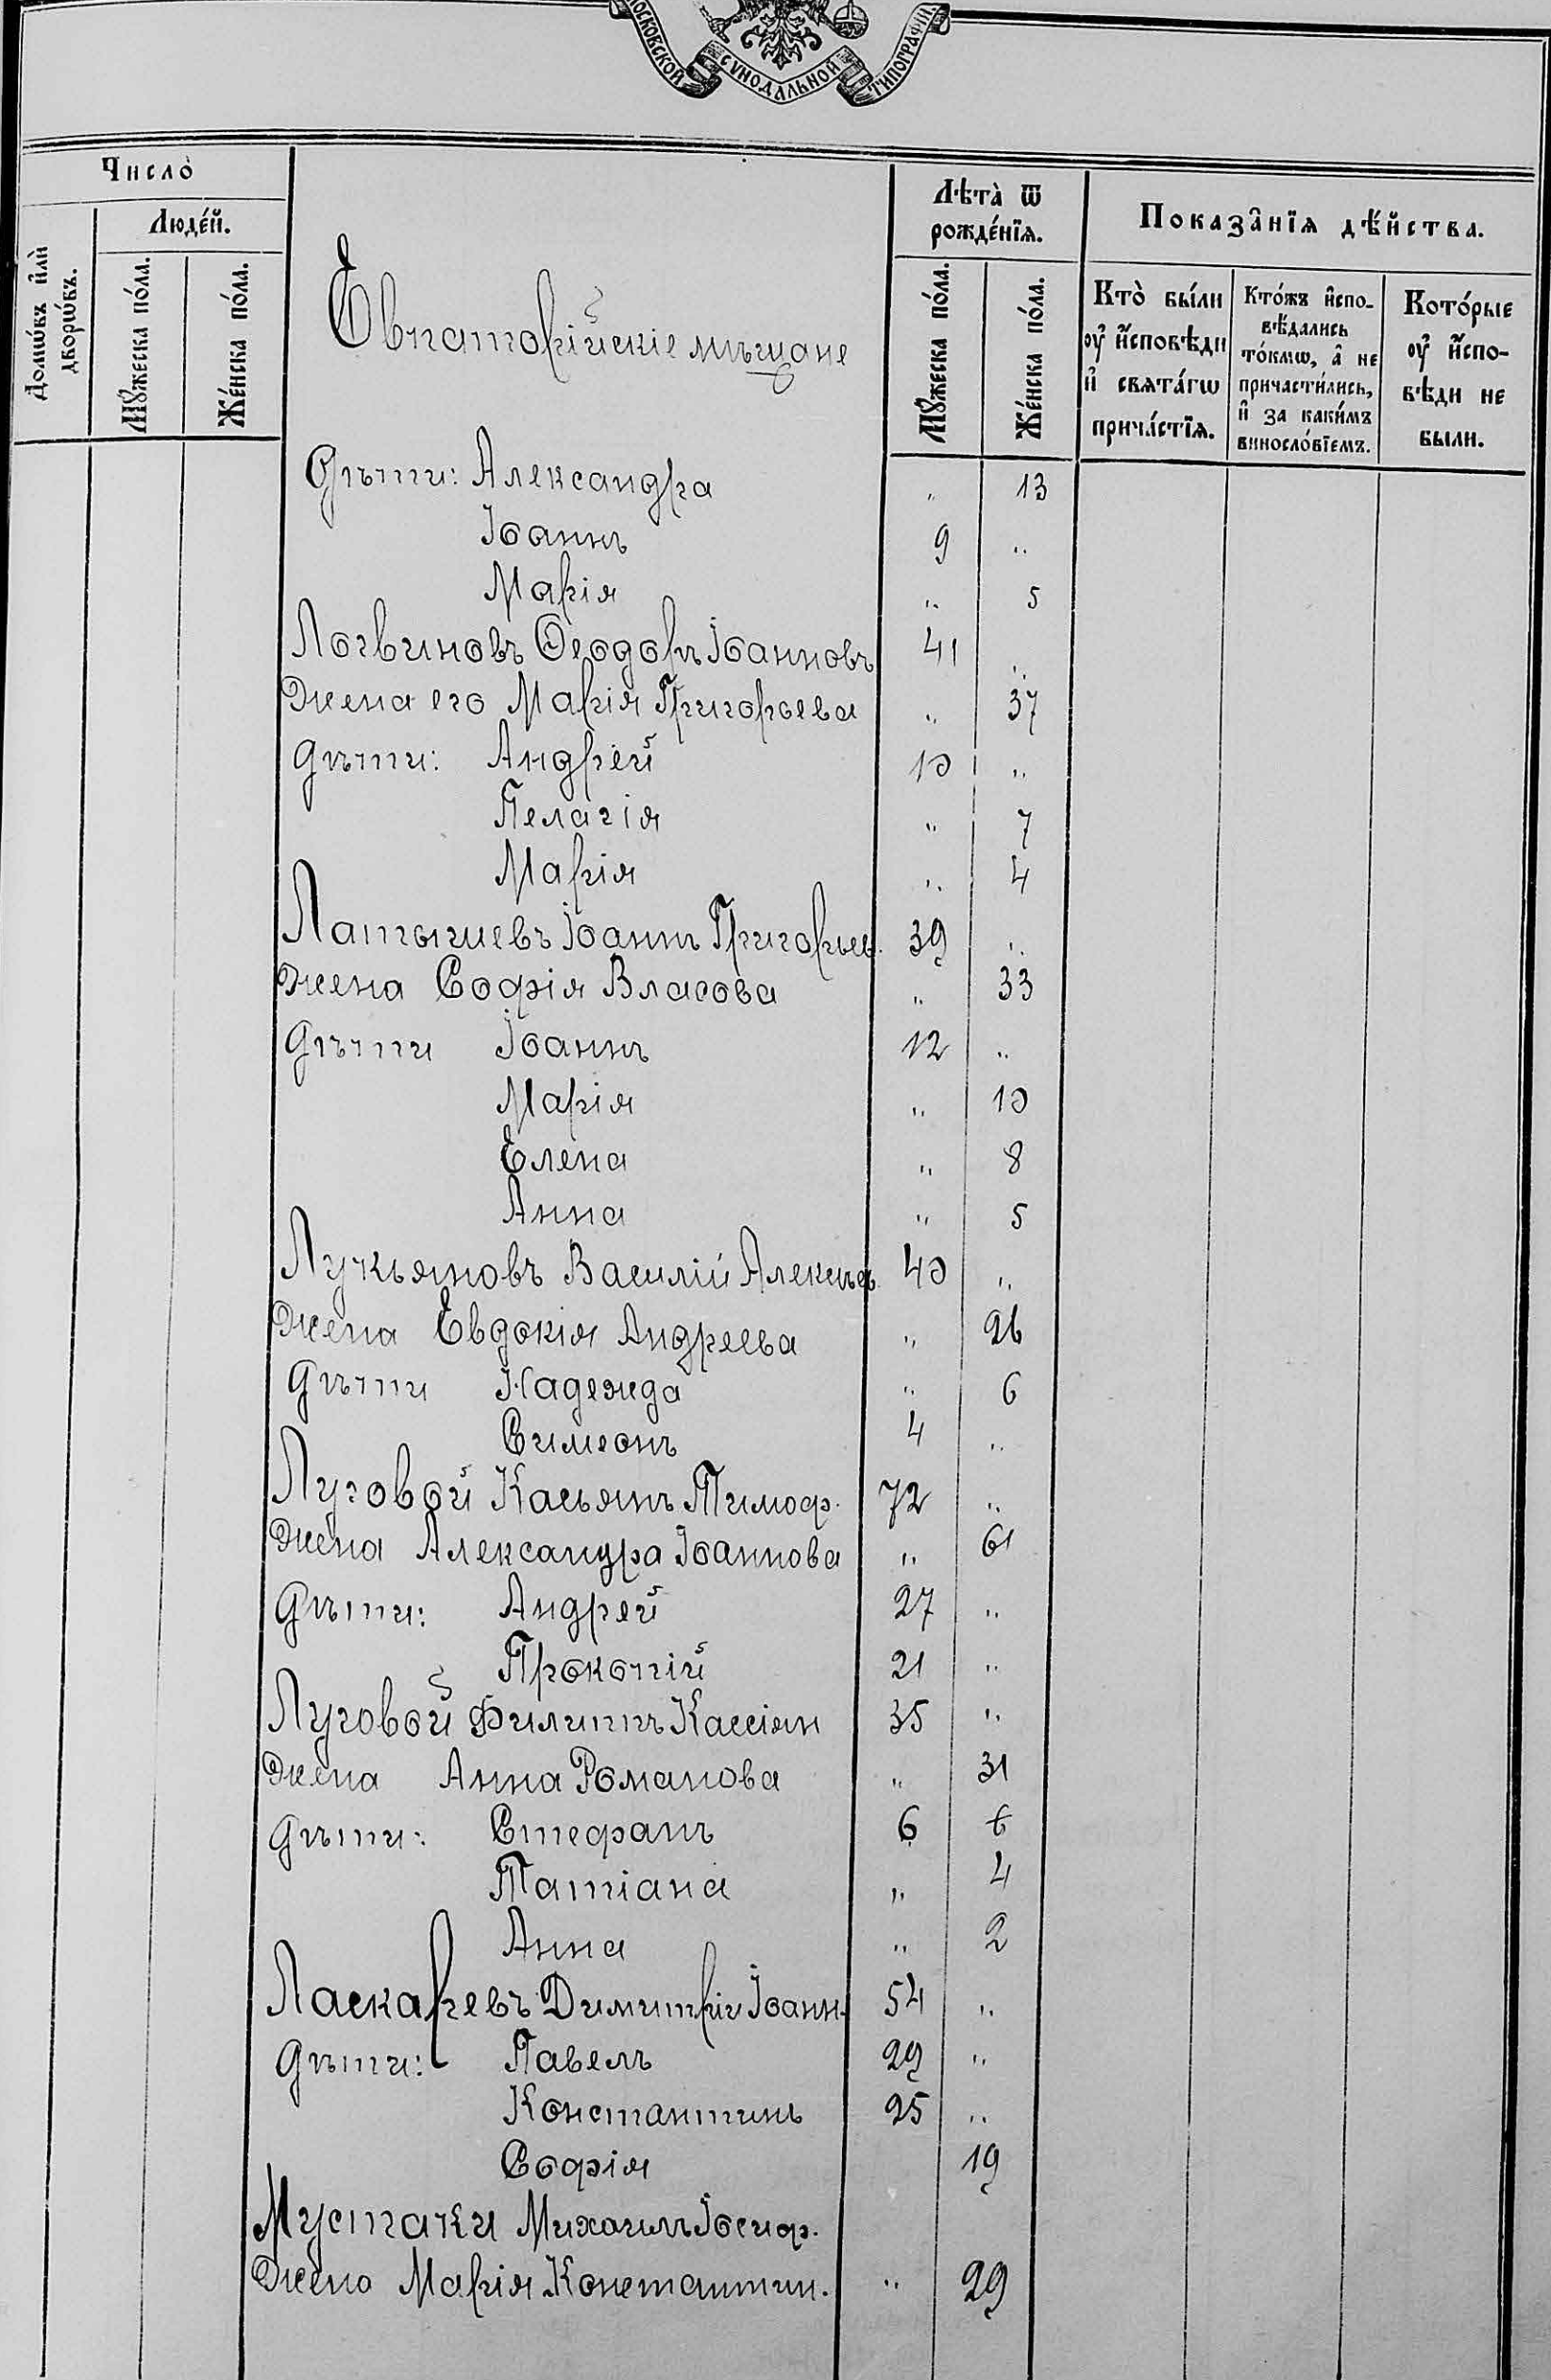 МОСКОВСКОЙ СѴНОДАЛЬНОЙ ТИПОГРАФІИ.
Число̀
Люде́й.
Домѡ́въ и҆лѝ дворѡ́въ.
Мꙋ́жеска по́ла.
Же́нска по́ла.
Лѣта̀ ѿ рожде́нїѧ.
Мꙋ́жеска по́ла.
Же́нска по́ла.
Показа̑нїѧ дѣ́йства.
Кто̀ бы́ли ᲂу҆ и҆́сповѣди и҆ свѧта́гѡ прича́стїѧ.
Кто́жъ и҆спо-вѣ́дались то́кмѡ, а҆ не причасти́лись, и҆ за каки́мъ винослѡ́вїемъ.
Кото́рые ᲂу҆ и҆́спо-вѣди не были.
Евпаторійскіе мѣщане
Дѣти: Александра „ 13
Іоаннъ 9 „
Марія „ 5
Логвиновъ Ѳеодоръ Іоанновъ 41 „
Жена его Марія Григорьева „ 37
Дѣти: Андрей 10 „
Пелагія „ 7
Марія „ 4
Латышевъ Іоаннъ Григорьев. 39 „
Жена Софія Власова „ 33
Дѣти Іоаннъ 12 „
Марія „ 10
Елена „ 8
Анна „ 5
Лукьяновъ Василій Алексѣев. 40 „
Жена Евдокія Андреева „ 26
Дѣти Надежда „ 6
Симеонъ 4 „
Луговой Касьянъ Тимоф. 72 „
Жена Александра Іоаннова „ 61
Дѣти: Андрей 27 „
Прокопій 21 „
Луговой Филиппъ Кассіян 35 „
Жена Анна Романова „ 31
Дѣти: Стефанъ 6 6
Татіана „ 4
Анна „ 2
Ласкаревъ Димитрій Іоанн. 54 „
Дѣти: Павелъ 29 „
Константинъ 25 „
Софія 19
Мустаки Михаилъ Іосиф.
Жена Марія Константин. „ 29